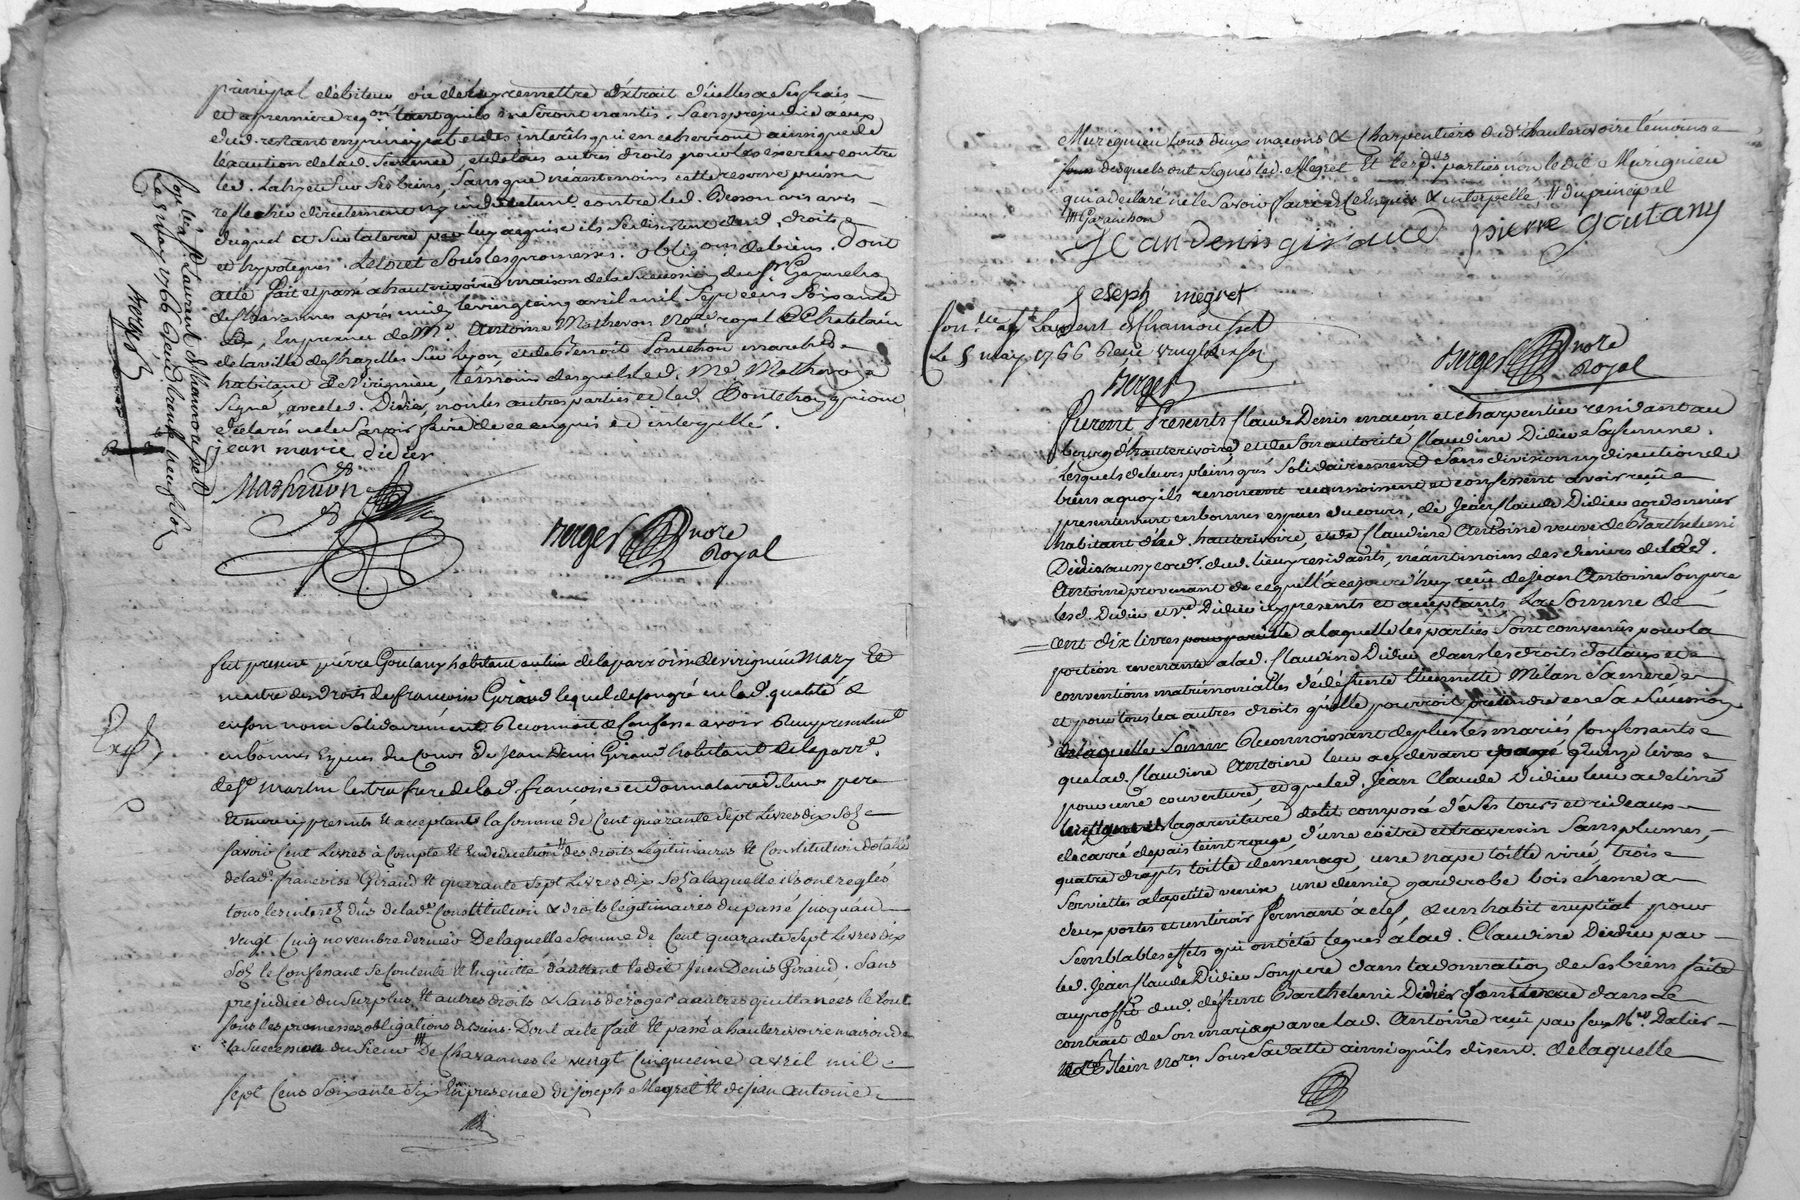 principal debiteur ou de luy remettre d'extrait d'icelles a ses frais
et a premiere reqon tant quils ne seront nantis. Sans prejudice a eux
dud. restant en principal et des interêts qui en echerront ainsi que de
l'execution de lad. Sentence, et de tous autres droits pour les exercer contre
led. sur ses biens, sans que neantmoins cette reserve puisse
reflechir directement ny indirectement contre led. Besson vis avis
duquel et sur la terre par luy acquise ils se desistent desd. droits
et hypoteques. Le tout sous les promesses. oblig.ons de biens. dont
acte fait et passé a hauterivoire maison de la succession du Sr. Gazanchon
de Chavannes après midy le vingt cinq avril mil sept cens soixante
six, En presence de Me. Antoine Mathevon Nore royal & Chatelain
de la ville de Chazelles sur Lyon, et de Benoit Ponchon marchand
habitant de Virignieu, témoins desquels led. Me Mathevon a
signé avec led. Didier, non les autres parties et led. Ponchon qui ont
déclarés ne le savoir faire de ce enquis et interpellé.
jean marie didier
Mathevon
Berger nore
Royal
Con.lé a St. Laurent de Chamousset
Le 5 may 1766 Reçu
Berger
fut present pierre Goutany habitant au lieu de la parroisse de virignieu Mary Et
maitre des droits de françoise Giraud lequel de son gré en lad. qualité &
en son nom solidairement Reconnoit & Confesse avoir Reçu presentement
en bonnes Espèces du Cours De Jean Denis Giraud habitant de la parr.
de St. martin lestra frere de lad. françoise et donnataire de leur pere
Et mere cy presents Et acceptant la somme de Cent quarante sept Livres dix sols
savoir Cent Livres à Compte Et En deduction des droits Legitimaires Et Constitution dotalle
de lad. francoise Giraud Et quarante sept Livres dix sols a laquelle ils ont reglés
tous les interêts dûs de lad. Constitution & droits legitimaires du passé jusqu'au
vingt Cinq novembre dernier De laquelle somme de Cent quarante sept Livres dix
Sols le Confessant se Contente Et En quitte d'autant ledit Jean Denis Giraud. Sans
prejudice du surplus Et autres droits & sans deroger a autres quittances le tout
sous les promesses obligations de biens. Dont acte fait Et passé a hauterivoire maison de
la succession du Sieur De Chavannes le vingt Cinquieme avril mil
sept Cens soixante six En presence de joseph Megret Et de jean antoine
Murignieu tous deux maçons & Charpentiers dud. hauterivoire témoins
desquels ont signés led. Megret Et lesd. parties non ledit Murignieu
qui a declaré ne le savoir faire de ce Enquis & interpellé. Et du principal
Gazanchon
Jean denis giraud pierre goutany
Joseph megret
Con.lé a St. Laurent de Chamousset
Le 5 may 1766 Reçu
Berger
Berger nore
Royal
Furent Presents Claude Denis maçon et charpentier residant au
bourg d'hauterivoire et de son autorité Claudine Didier sa femme.
lesquels de leurs pleins grés solidairement sans division ny discution de
biens a quoy ils renoncent reconnoissent et confessent avoir reçû
presentement en bonnes especes du cours, de Jean Claude Didier cordonnier
habitant dud. hauterivoire, et de Claudine Antoine veuve de Barthelemi
Didier aussy cord. dud. lieu y residants, neantmoins des deniers de lad.
Antoine provenant de ce qu'ill'a cejourd'huy reçû de Jean Antoine son pere
lesd. Didier et ve. Didier cy presents et acceptants La somme de
cent dix livres a laquelle les parties sont convenûs pour la
portion revenante a lad. Claudine Didier dans les droits dottaux et
conventions matrimonialles de défunte Etiennette Milan sa mere
et pour tous les autres droits qu'elle pourroit pretendre en sa succession
Reconnoissant de plus les mariés Confessants
que lad. Claudine Antoine leur a cy devant payé quinze livres
pour une couverture et que led. Jean Claude Didier leur a delivré
la garniture de lit composé de ses tours et rideaux
de carré de pais teint rouge, d'une coëtre et traversin sans plumes,
quatre draps toille de menage, une nape toille virée, trois
serviettes a la petite venise une demie garderobe bois chesne a
deux portes et un tiroir fermant à clef, & un habit nuptial pour
semblables effets qui ont été legués a lad. Claudine Didier par
led. Jean Claude Didier son pere dans la donnation de ses biens faite
au proffit dud. défunt Barthelemi Didier son frere dans le
contrat de son mariage avec lad. Antoine reçû par feu Me. Dalier
Nores. sous sa datte ainsi qu'ils disent. de laquelle